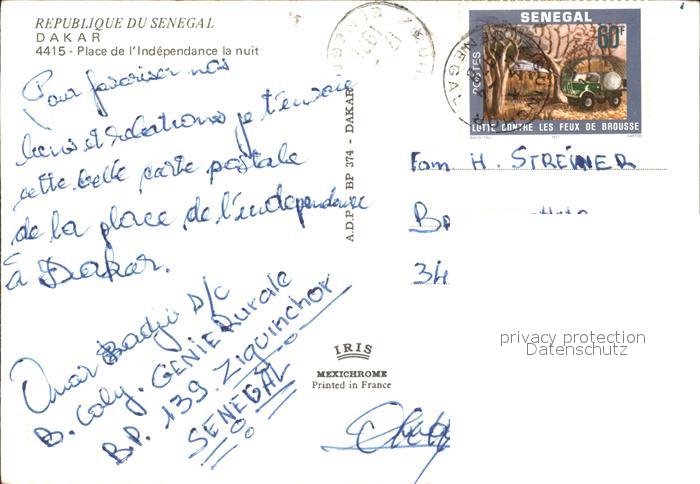 REPUBLIQUE DU SENEGAL
DAKAR
4415 - Place de l'Indépendance la nuit
Pour favoriser nos
liens et relations je t'envoie
cette belle carte postale
de la place de l'independance
à Dakar.
Omar Badji S/C
B. Coly. GENIE Rurale
B.P. 139 Ziguinchor
SENEGAL
A.D.P. - BP 374 - DAKAR
IRIS
MEXICHROME
Printed in France
SENEGAL
60F
POSTES
LUTTE CONTRE LES FEUX DE BROUSSE
Fam H. STREINER
34
privacy protection
Datenschutz